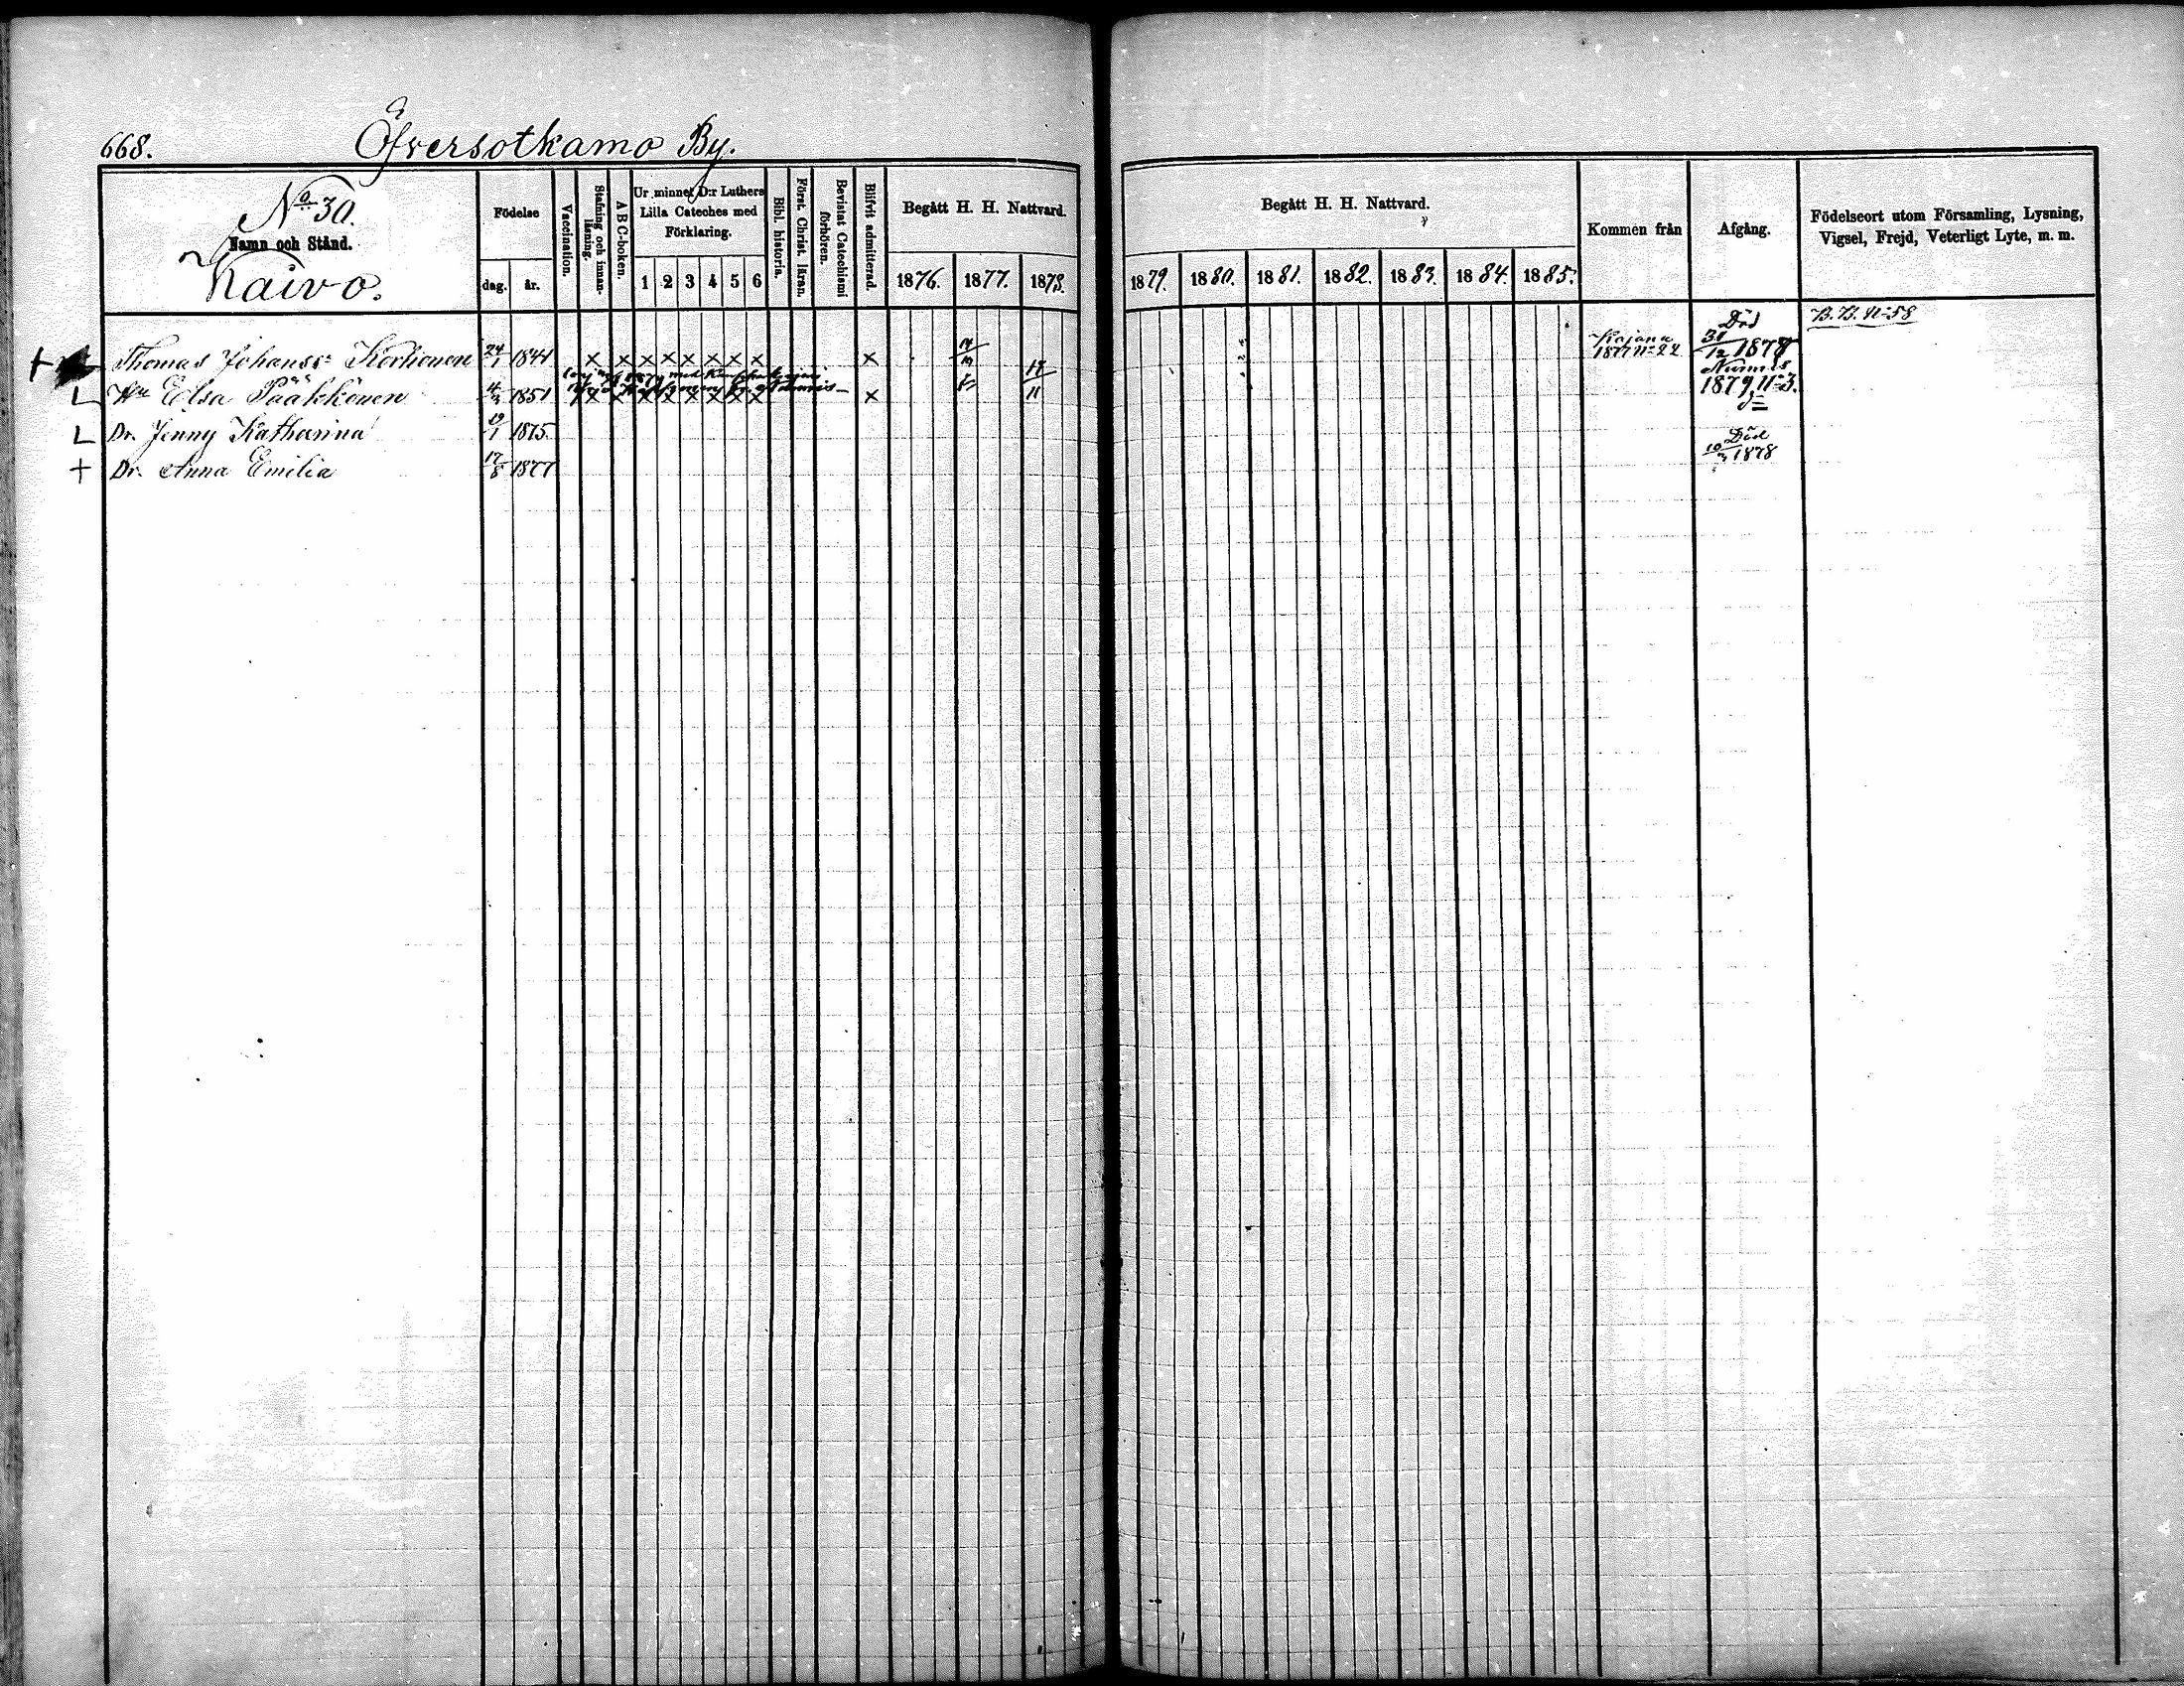 668.
Öfversotkamo By.
No 30.
Namn och Stånd.
Kaivo.
Födelse
dag. år.
Vaccination.
Stafning och innan-läsning.
A B C-boken.
Ur minnet D:r Luthers
Lilla Cateches med
Förklaring.
1 2 3 4 5 6
Bibl. historia.
Först. Christ. läran.
Bevistat Catechismi förhören.
Blifvit admitterad.
Begått H. H. Nattvard.
1876. 1877. 1878.
Begått H. H. Nattvard.
1879. 1880. 1881. 1882. 1883. 1884. 1885.
Kommen från
Afgång.
Födelseort utom Församling, Lysning,
Vigsel, Frejd, Veterligt Lyte, m. m.
Thomas Johanss: Korhonen 24/1 1841 × × × × × × × × × Kajana 1877 No 22 Död 31/12 1877 B. B. No 58
Hu Elsa Pääkkönen 1851 × × × × × × × × × 17/11 Nurmes 1879 No 3.
Dr. Jenny Katharina 19/1 1875.
Dr. Anna Emilia 17/8 1877 Död 10/3 1878